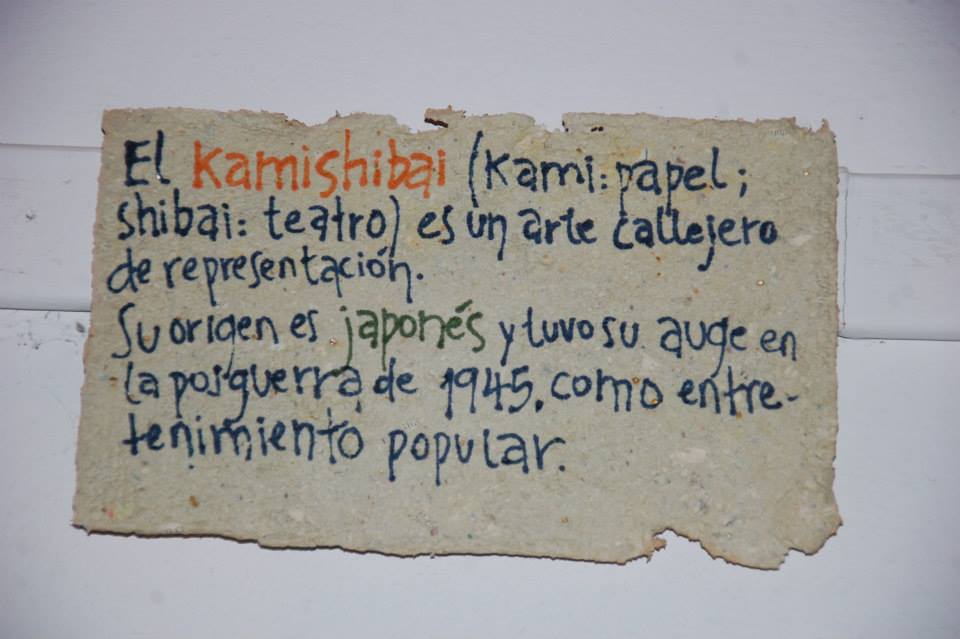 El Kamishibai (Kami: papel;
shibai: teatro) es un arte callejero
de representación.
Su origen es japonés y tuvo su auge en
la posguerra de 1945, como entre-
tenimiento popular.